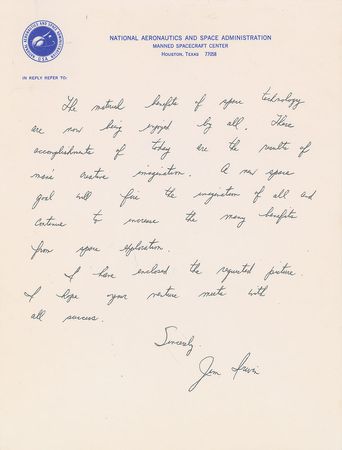 NATIONAL AERONAUTICS AND SPACE ADMINISTRATION
MANNED SPACECRAFT CENTER
HOUSTON, TEXAS 77058
IN REPLY REFER TO:
The material benefits of space technology
are now being enjoyed by all. These
accomplishments of today are the results of
man's creative imagination. A new space
goal will fire the imagination of all and
continue to increase the many benefits
from space exploration.
I have enclosed the requested picture.
I hope your venture meets with
all success.
Sincerely,
Jim Irwin